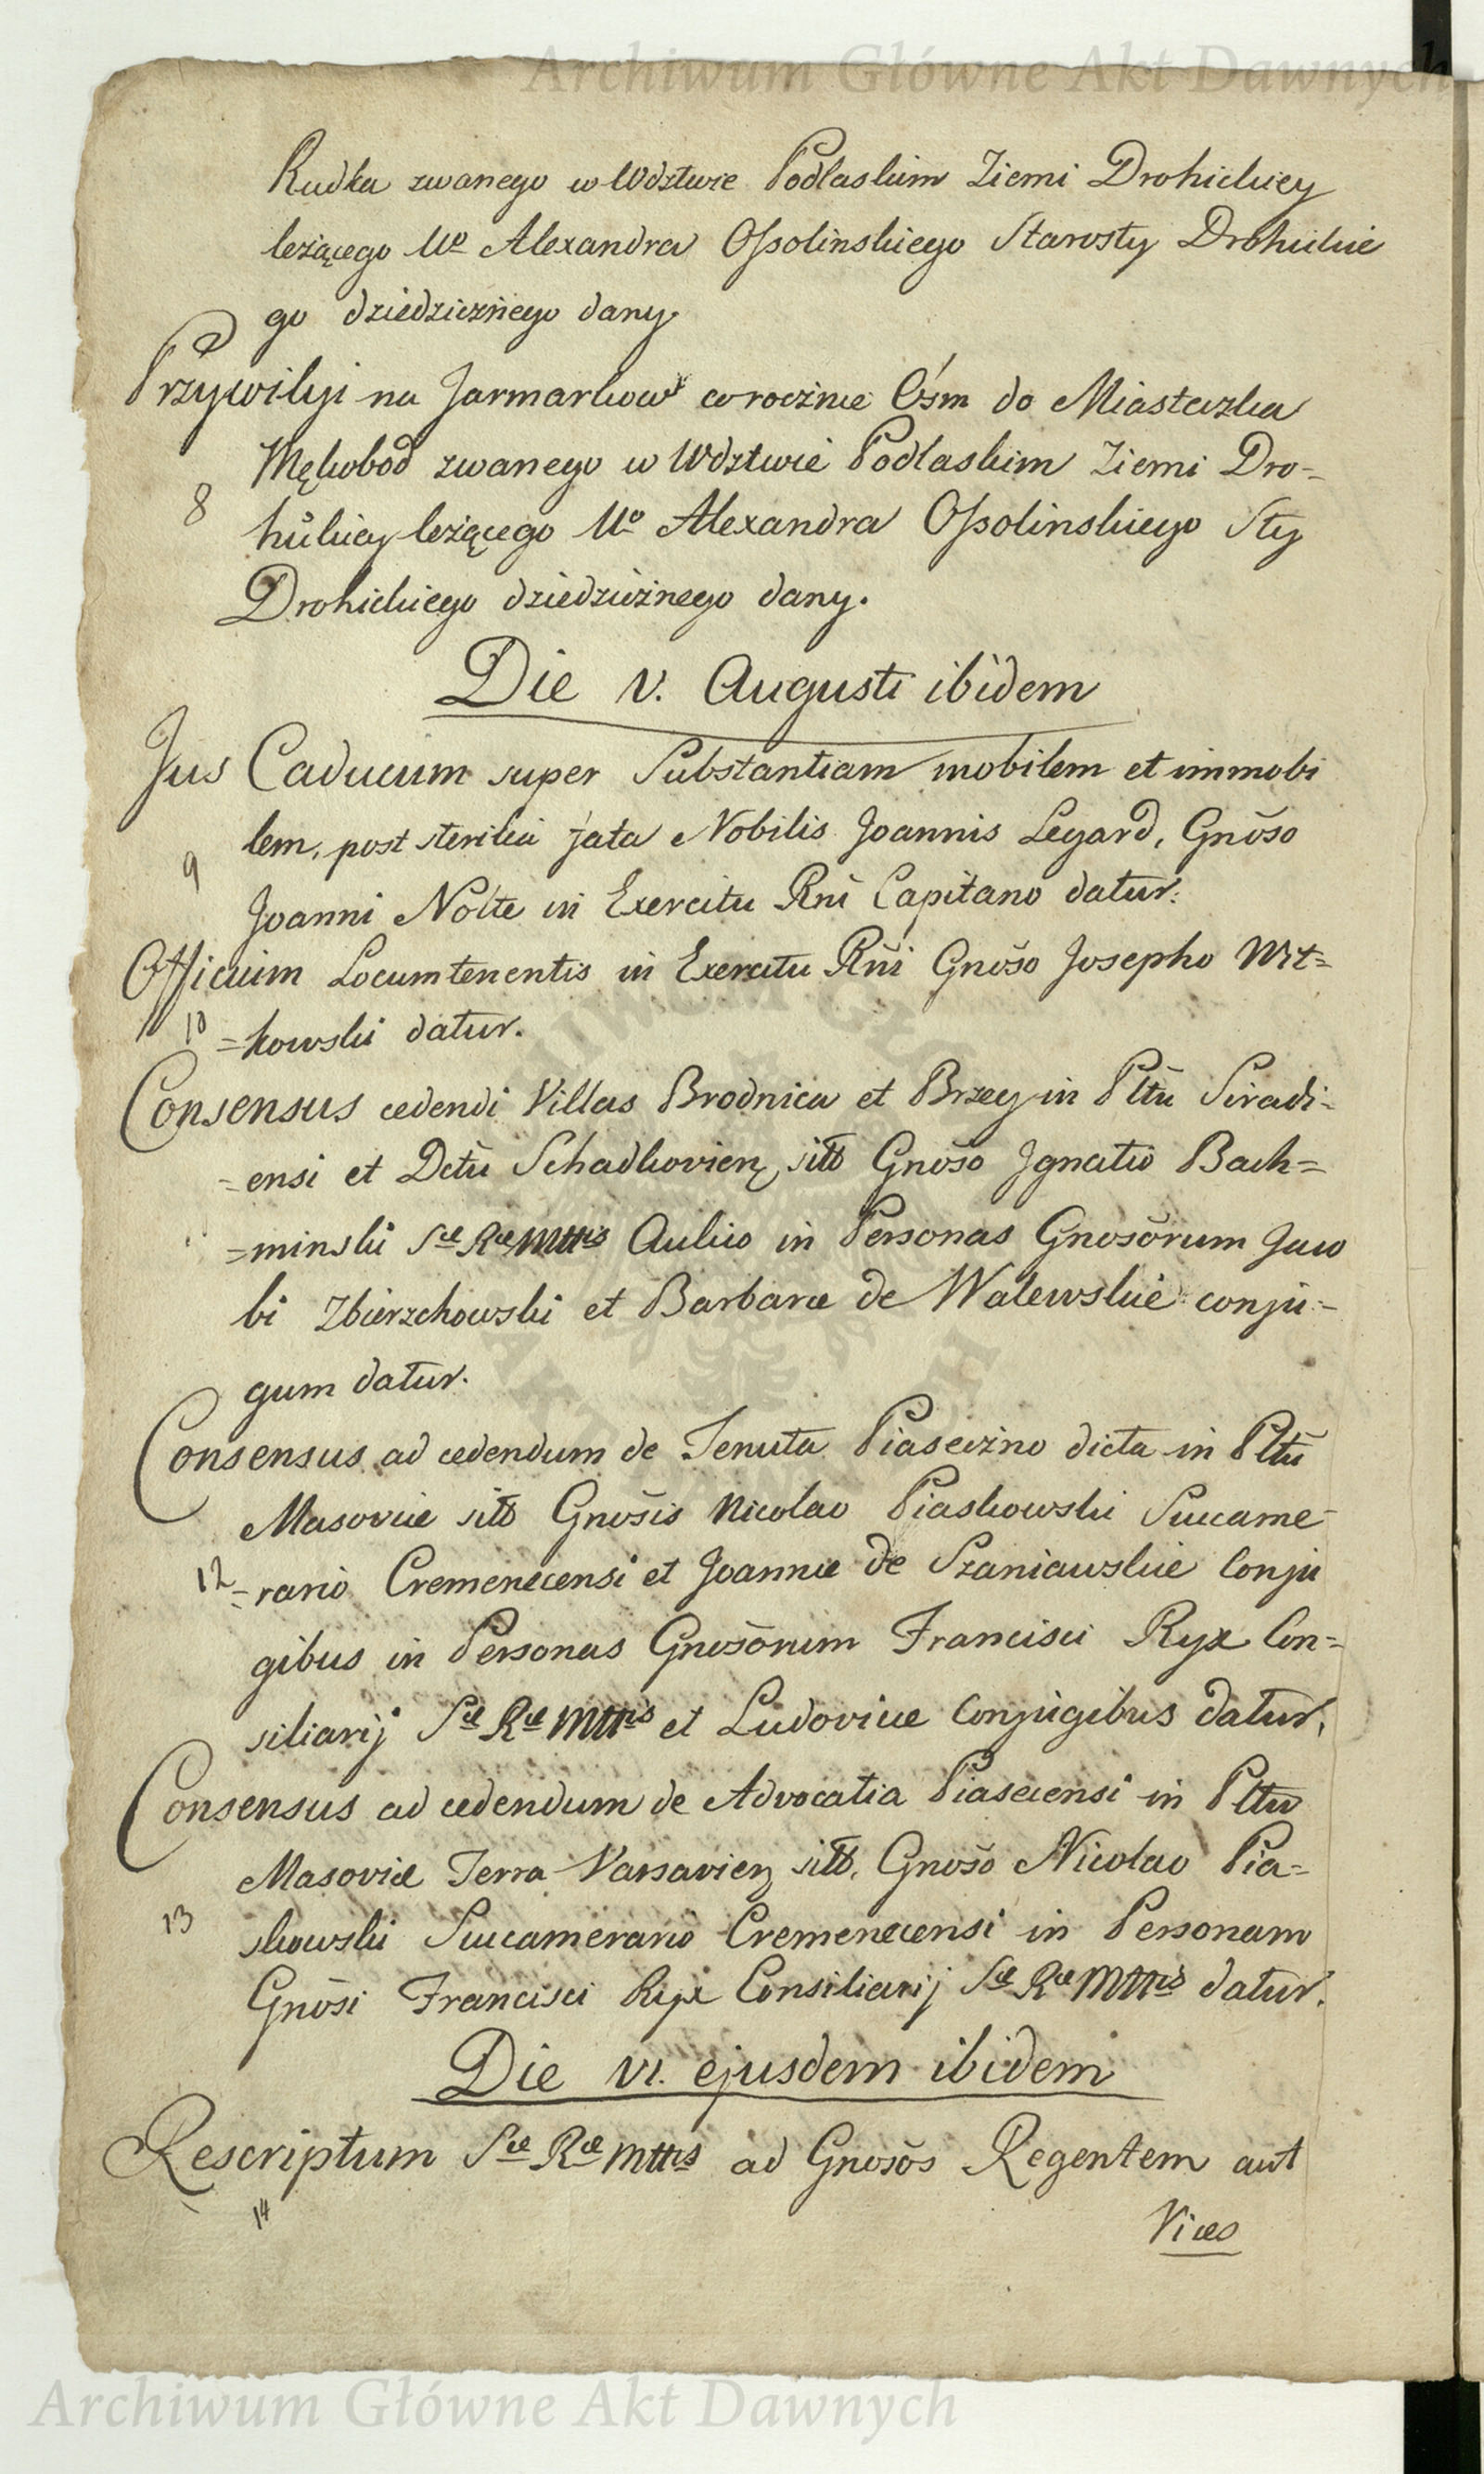 Archiwum Główne Akt Dawnych
Rudka zwanego w Wdztwie Podlaskim Ziemi Drohickiey
leżącego Uo Alexandra Ossolinskiego Starosty Drohickie
go dziedzicznego dany.
Przywiliyi na Jarmarkow corocznie Ośm do Miasteczka
Mękobod zwanego w Wdztwie Podlaskim Ziemi Dro=
8
hickiey leżącego Uo Alexandra Ossolinskiego Sty
Drohickiego dziedzicznego dany.
Die V. Augusti ibidem
Jus Caducum super Substantiam mobilem et immobi
lem, post sterilia fata Nobilis Joannis Legard, Gnõso
9
Joanni Nolte in Exercitu Rni Capitano datur.
Officium Locumtenentis in Exercitu Rñi Gnõso Josepho Wit=
10 =kowski datur.
Consensus cedendi Villas Brodnica et Brzeg in Pltũ Siradi=
=ensi et Dctũ Schadkovien, sitt Gnõso Ignatio Bach=
=minski Sæ Ræ Mttis Aulico in Personas Gnosõrum Jaco
bi Zbierzchowski et Barbaræ de Walewskie conju=
gum datur.
Consensus ad cedendum de Tenuta Piaseczno dicta in Pltũ
Masoviæ sitt Gnõsis Nicolao Piaskowski Succame=
12 =rario Cremenecensi et Joannæ de Szaniawskie Conju
gibus in Personas Gnosõrum Francisci Ryx Con=
siliarij Sæ Ræ Mttis et Ludovicæ Conjugibus datur.
Consensus ad cedendum de Advocatia Piasecensi in Pltu
Masoviæ Terra Varsavien sitt. Gnõso Nicolao Pia=
13
skowski Succamerario Cremenecensi in Personam
Gnõsi Francisci Ryx Consiliarij Sæ Ræ Mttis datur.
Die VI. ejusdem ibidem
Rescriptum Sæ Ræ Mttis ad Gnosõs Regentem aut
14
Vices
Archiwum Główne Akt Dawnych